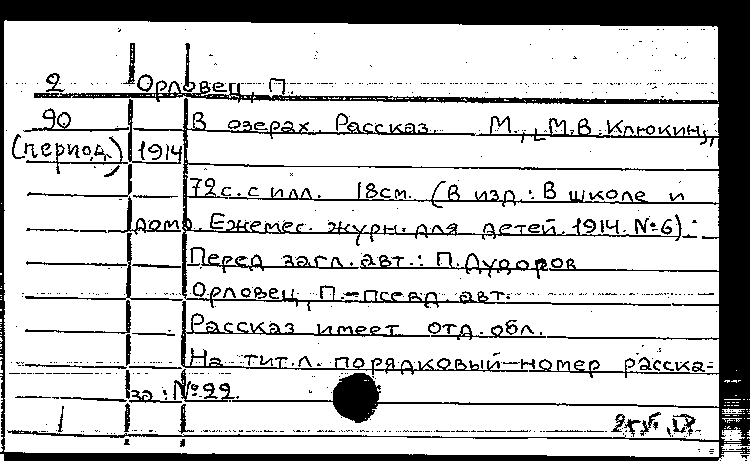 2 Орловец, П.
90 В озерах. Рассказ. М., [М.В. Клюкин],
(период) 1914
72с. с илл. 18см. (В изд.: В школе и
дома. Ежемес. журн. для детей. 1914. №6).
Перед загл. авт.: П. Дудоров
Орловец, П.=псевд. авт.
Рассказ имеет отд. обл.
На тит.л. порядковый номер расска=
за: №22.
1